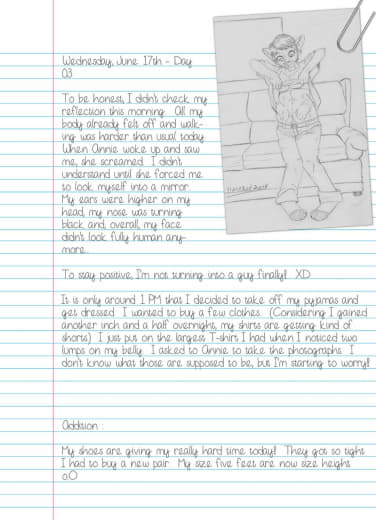 Wednesday, June 17th - Day
03
To be honest, I didn't check my
reflection this morning. All my
body already felt off and walk-
ing was harder than usual today.
When Annie woke up and saw
me, she screamed. I didn't
understand until she forced me
to look myself into a mirror.
My ears were higher on my
head, my nose was turning
black and, overall, my face
didn't look fully human any-
more...
To stay positive, I'm not turning into a guy finally! XD
It is only around 1 PM that I decided to take off my pyjamas and
get dressed. I wanted to buy a few clothes. (Considering I gained
another inch and a half overnight, my shirts are getting kind of
shorts) I just put on the largest T-shirt I had when I noticed two
lumps on my belly. I asked to Annie to take the photographs. I
don't know what those are supposed to be, but I'm starting to worry!!
Addition :
My shoes are giving my really hard time today!! They got so tight
I had to buy a new pair. My size five feet are now size height.
o.O